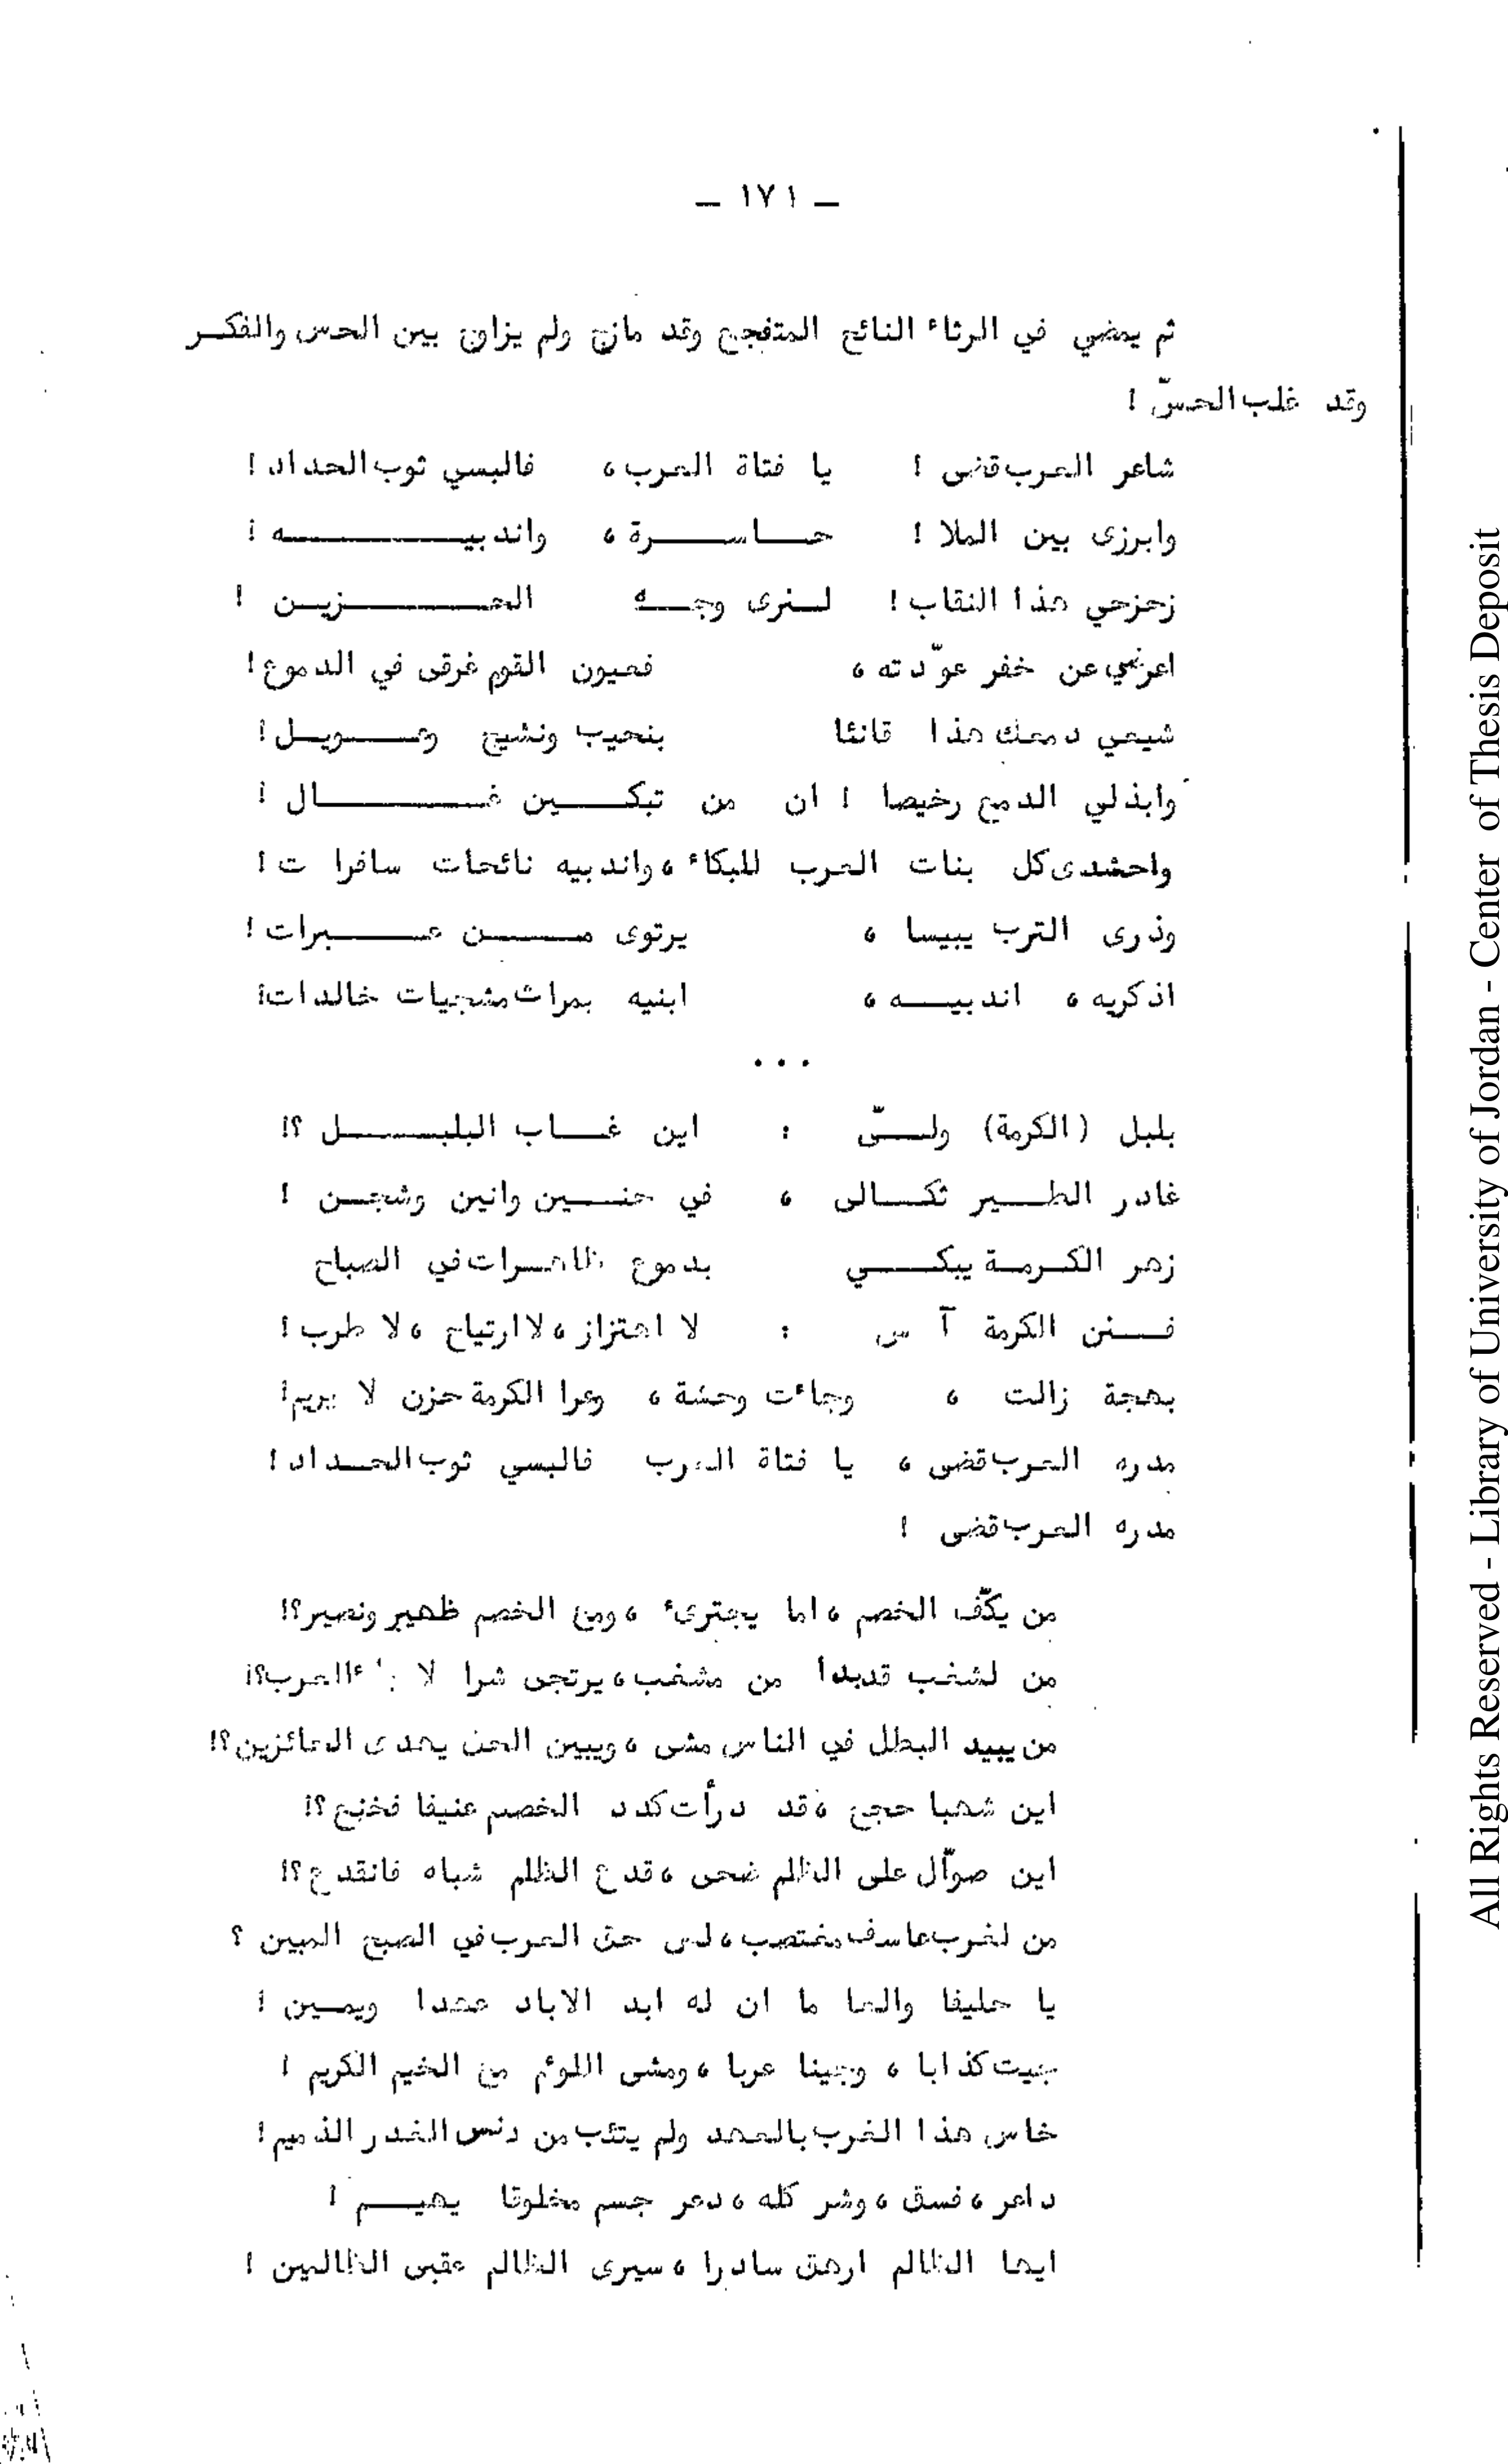 — ١٧١ —
ثم يمضي في الرثاء النائح المتفجع وقد مازج ولم يزاوج بين الحس والفكر
وقد غلب الحسّ !
شاعر العرب قضى ! يا فتاة العرب، فالبسي ثوب الحداد !
وابرزى بين الملا ! حاسرة، واندبيه !
زحزحي هذا النقاب ! لنرى وجه الحزين !
اعرضي عن خفر عوّدته، فعيون القوم غرقى في الدموع !
شيعي دمعك هذا قانئا بنحيب ونشيج وعويل !
وابذلي الدمع رخيصا ! ان من تبكين غال !
واحشدى كل بنات العرب للبكاء، واندبيه نائحات سافرات !
وذرى الترب يبيسا، يرتوى من عبرات !
اذكريه، اندبيه، ابنيه بمراث مشجيات خالدات !
...
بلبل (الكرمة) ولّى : اين غاب البلبل ؟!
غادر الطير ثكالى، في حنين وانين وشجن !
زهر الكرمة يبكي بدموع ظاهرات في الصباح
فنن الكرمة آس : لا اهتزاز، لا ارتياح، لا طرب !
بهجة زالت، وجاءت وحشة، وعرا الكرمة حزن لا يريم !
مدره العرب قضى، يا فتاة العرب فالبسي ثوب الحداد !
مدره العرب قضى !
من يكفّ الخصم، اما يجترىء، ومع الخصم ظهير ونصير ؟!
من لشغب قد بدا من مشغب، يرتجى شرا لا العرب ؟!
من يبيد البطل في الناس مشى، ويبين الحق يهدى الحائزين ؟!
اين شهبا حجج، قد درأت كدد الخصم عنيفا فخنع ؟!
اين صوّال على الظلم ضحى، قدع الظلم شباه فانقدع ؟!
من لغرب عاسف مغتصب، لص حق العرب في الصبح المبين ؟
يا حليفا والعا ما ان له ابد الاباد عهدا ويمين !
جيت كذابا، وجينا عربا، ومشى اللوءم مع الخيم الكريم !
خاس هذا الغرب بالعهد ولم يتئب من دنس الغدر الذميم !
داعر، فسق، وشر كله، دعر جسم مخلوقا يهيم !
ايها الظالم ارهق سادرا، سيرى الظالم عقبى الظالمين !
All Rights Reserved - Library of University of Jordan - Center of Thesis Deposit